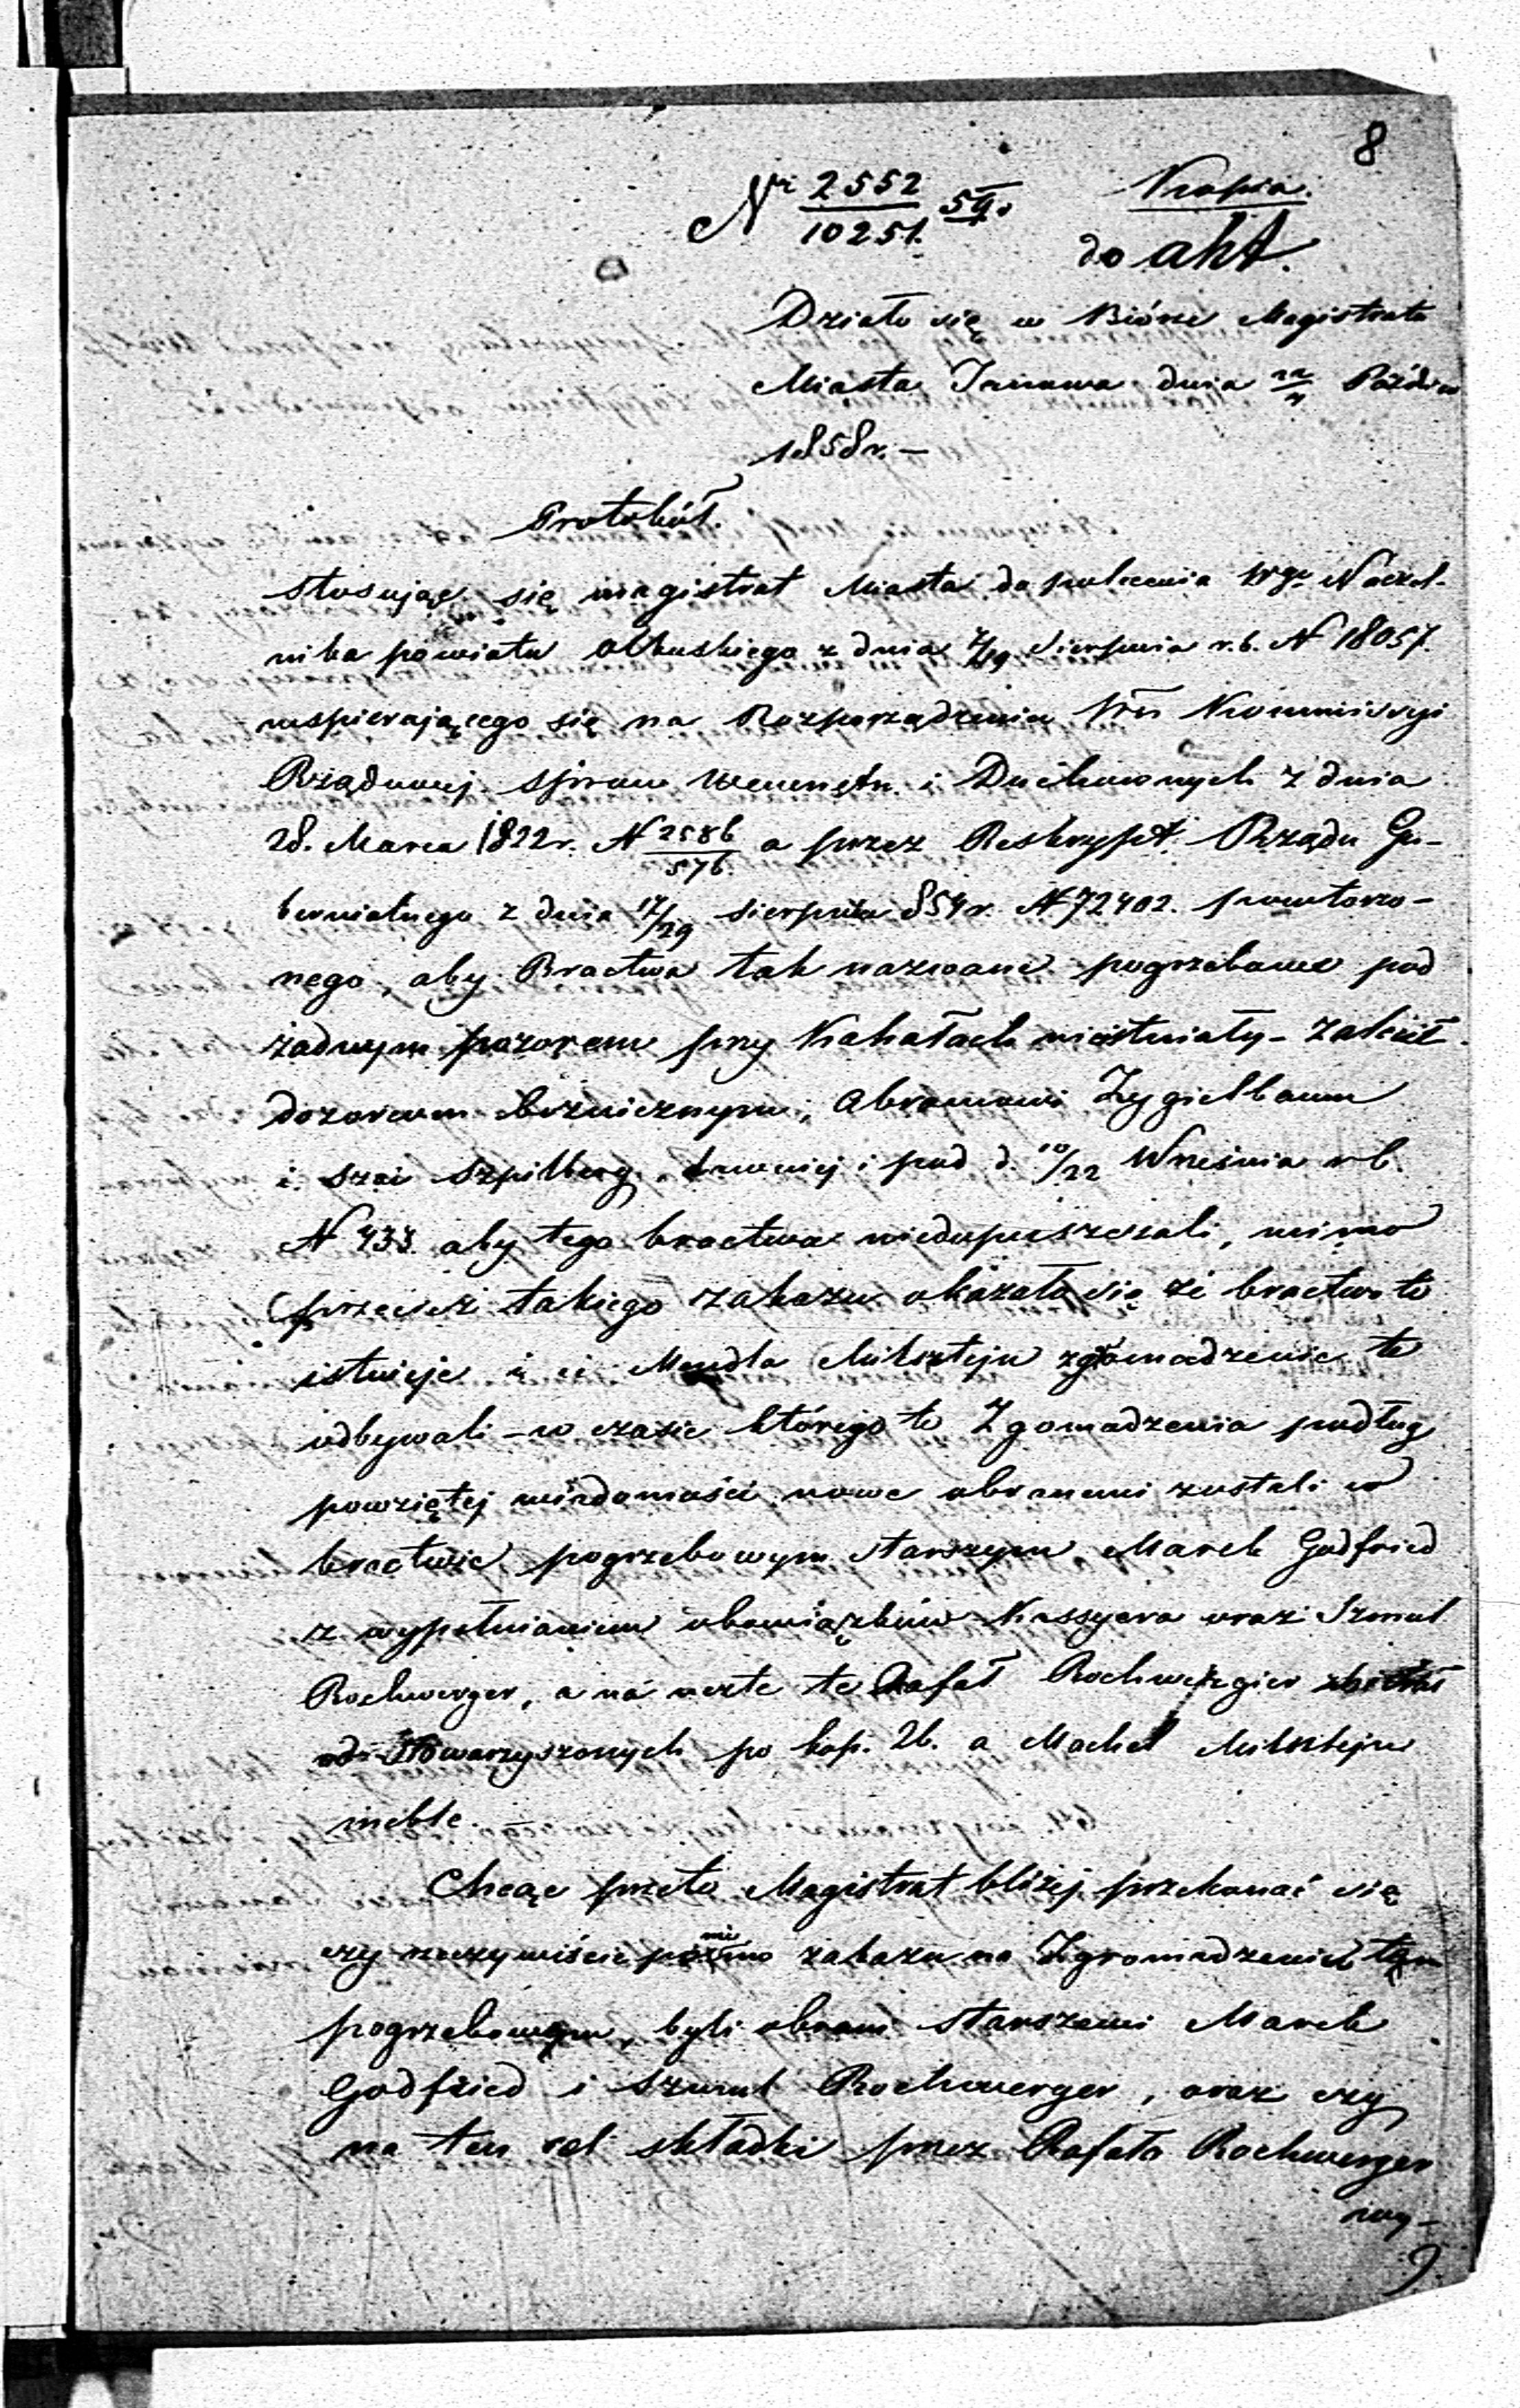 8
Nr 2552/10251
Kopia.
do akt.
Działo się w Biórze Magistratu
Miasta Janowa dnia Paździer
1858 r. —
Protokół.
Stosując się magistrat Miasta do polecenia Wgo Naczel-
nika powiatu Olkuskiego z dnia 7/19 Sierpnia r. b. N 18057.
wspierającego się na Rozporządzeniu Kommissyi
Rządowej spraw Wewnętn. i Duchownych z dnia
28. Marca 1822 r. N 2586/576. a przez Reskrypt Rządu Gu-
bernialnego z dnia 17/29 sierpnia 854 r. N 72402. powtórzo-
nego, aby Bractwa tak nazwane pogrzebowe pod
żadnym pozorem przy Kahałach nieistniały - zalecił
dozorcom bóżnicznym, Abramowi Zygielbaum
i Szai Szpilberg, dawniej i pod d. 10/22 Września r b.
N 433. aby tego bractwa niedopuszczali, mimo
przecież takiego zakazu okazało się że bractwo to
istnieje i u Mendla Milsztejn zgromadzenie te
odbywali - w czasie którego to Zgomadzenia podług
powziętej wiadomości nowe obranemi zostali w
bractwie pogrzebowym starszym, Marek Godfried
z wypełnianiem obowiązków Kassyera oraz Szmul
Rochwerger, a na ucztę te Rafał Rochwergier zbierał
od Stowarzyszonych po kop. 26. a Machel Milsztejn
meble.
Chcąc przeto Magistrat bliżej przekonać się
czy rzeczywiście pomimo zakazu na Zgromadzeniu tym
pogrzebowym, byli obrani starszemi Marek
Godfried i Szmul Rochwerger, oraz czy
na ten cel składki przez Rafała Rochwerger
wy-
9